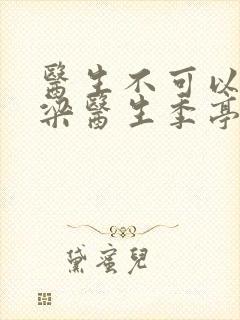 醫生不可以
梁醫生季亭
黛蜜兒